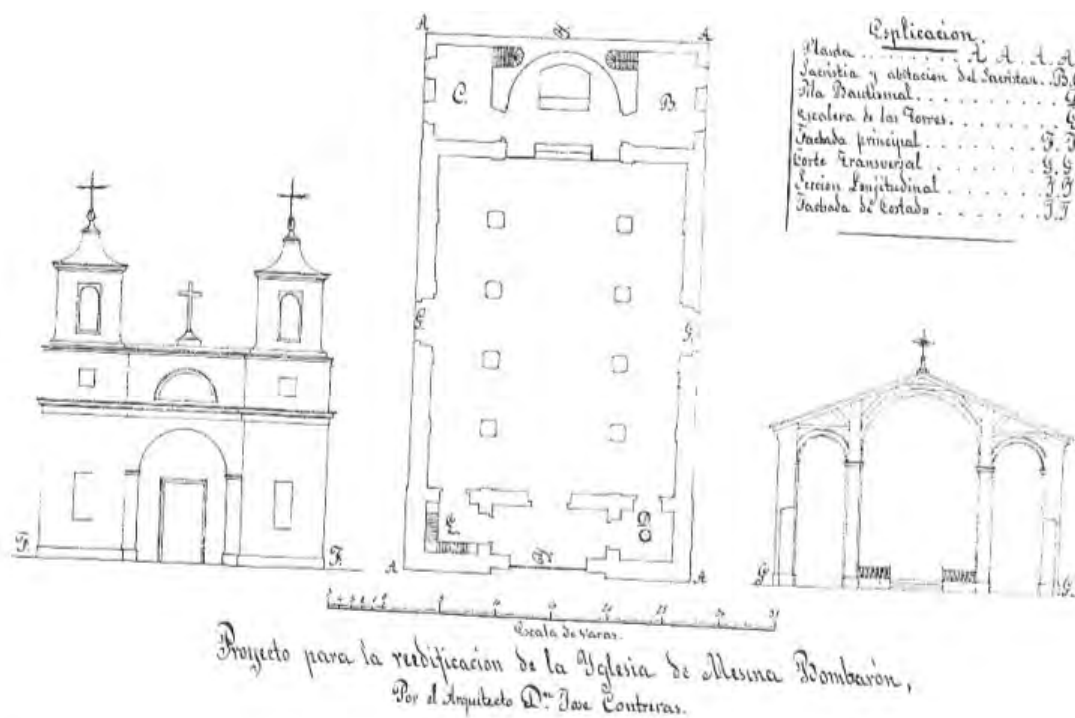 Esplicacion.
Planta . . . . . . . . . A. A. A. A
Sacristia y abitacion del Sacristan . . B.C
Pila Bautismal . . . . . . . . . D
Escalera de las Torres . . . . . . . . E
Fachada principal . . . . . . . . F. F
Corte Transversal . . . . . . . . G. G
Seccion Lonjitudinal . . . . . . .
Fachada de Costado . . . . . . .
A
A
C.
B
G.
G.
A
A
F.
F.
G.
G.
Escala de varas.
Proyecto para la reedificación de la Yglesia de Mesina Bombarón,
Por el Arquitecto Dn. Jose Contreras.